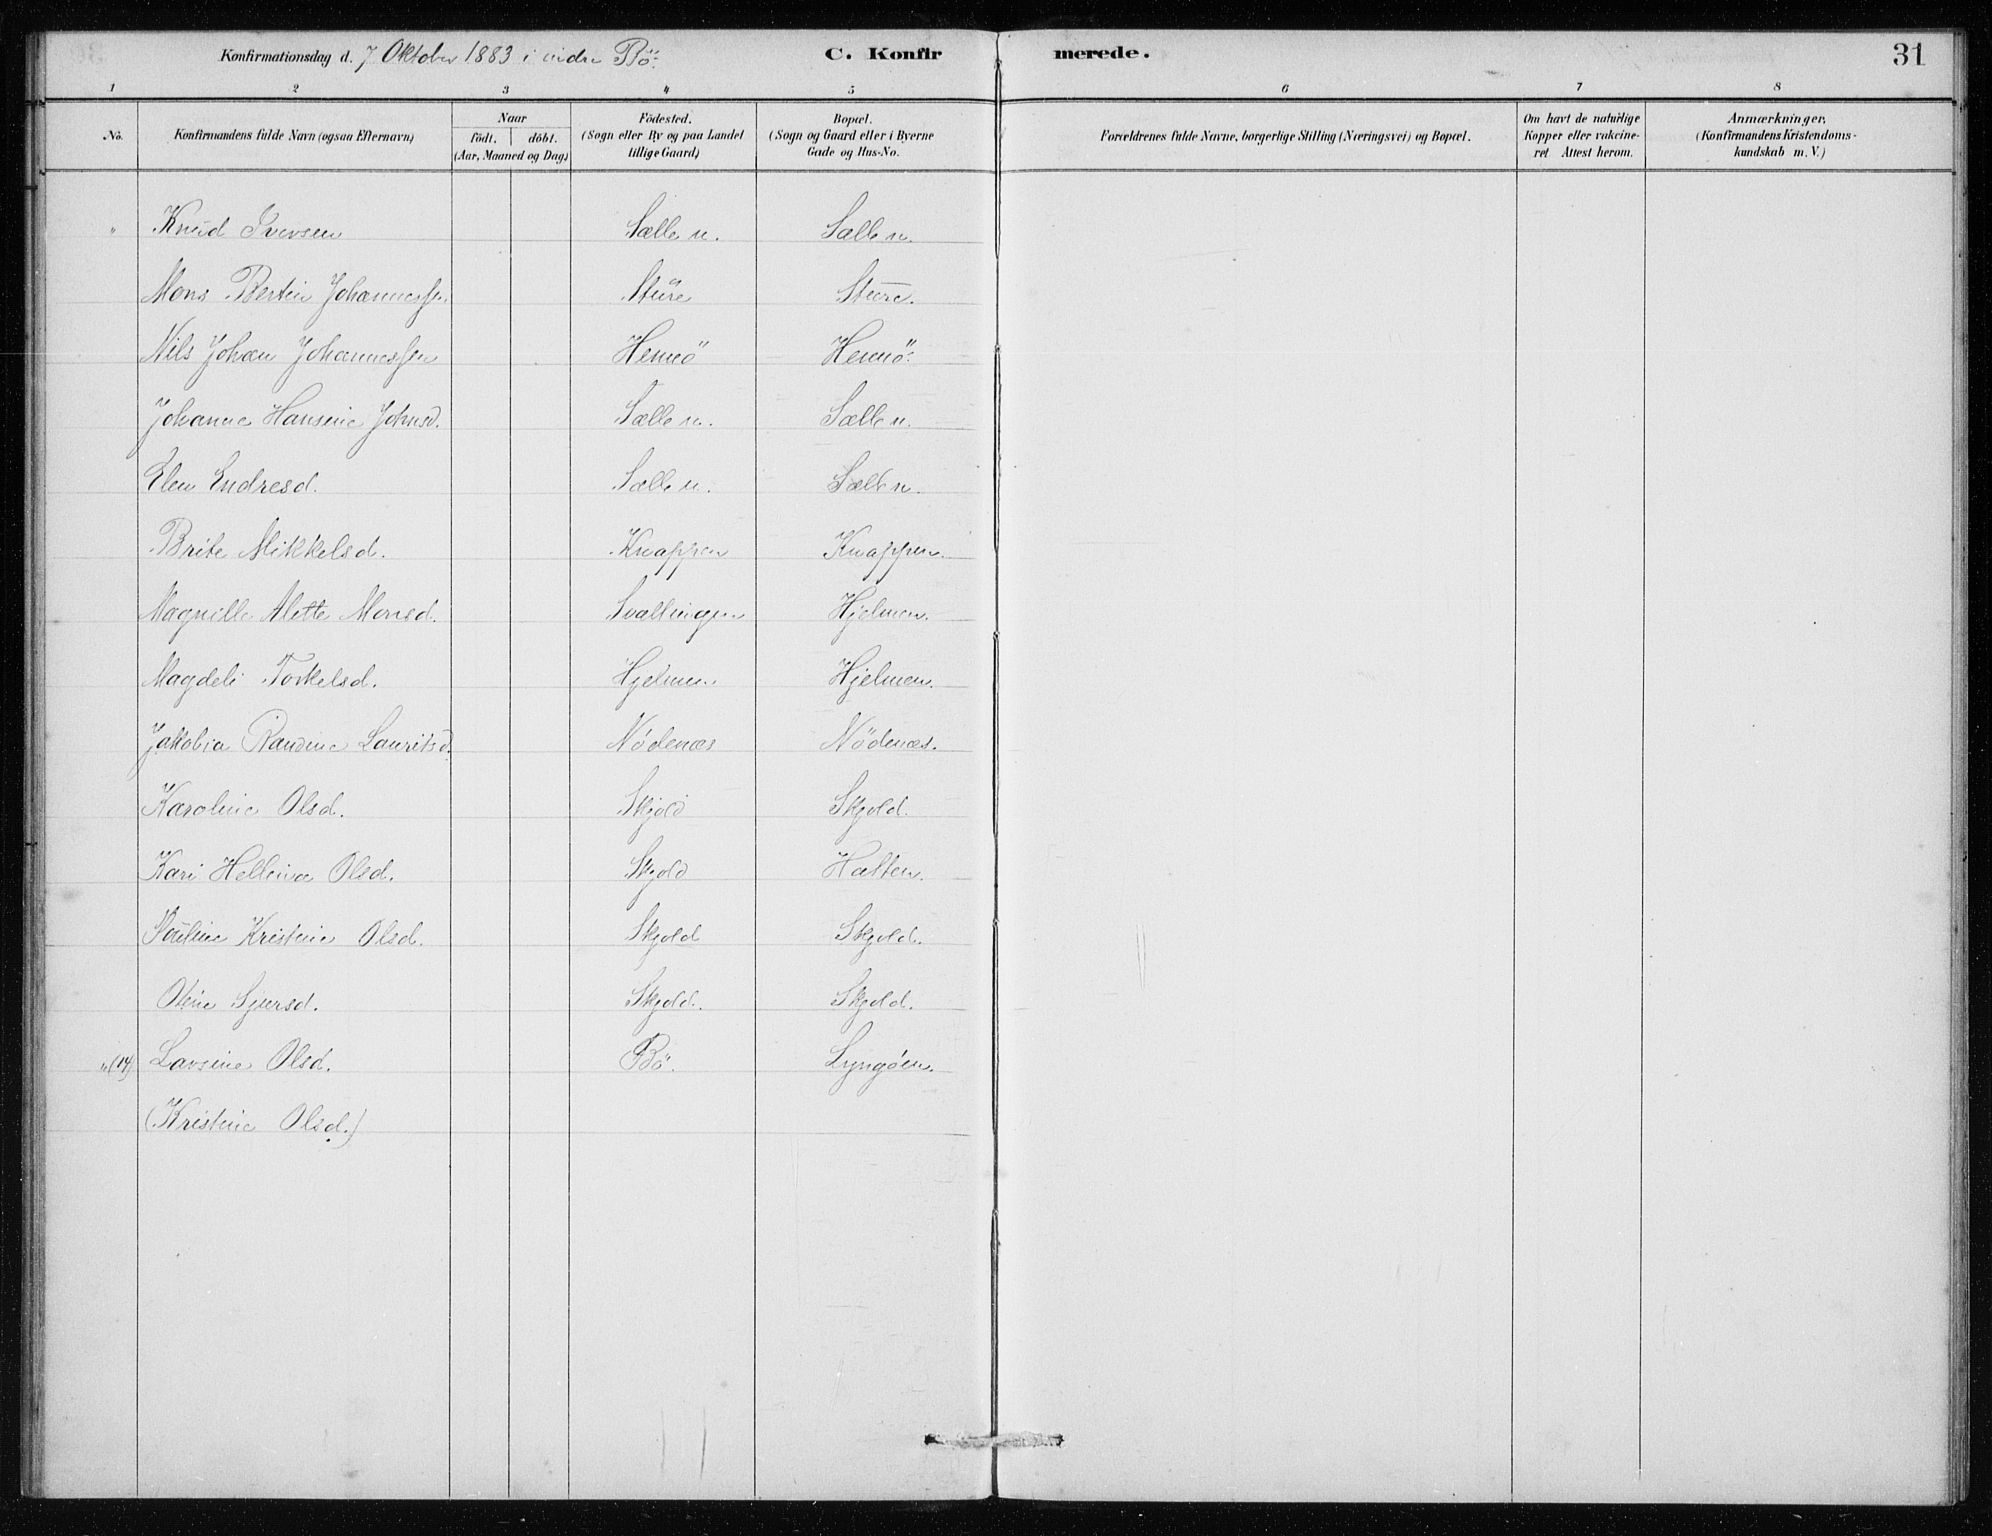 Konfirmationsdag d. 7 Oktober 1883 i indre Bö. C. Konfirmerede. 31
1 2 3 4 5 6 7 8
No. Konfirmandens fulde Navn (ogsaa Efternavn) Naar födt. döbt. (Aar, Maaned og Dag) Födested. (Sogn eller By og paa Landet tillige Gaard) Bopæl. (Sogn og Gaard eller i Byerne Gade og Hus-No. Forældrenes fulde Navne, borgerlige Stilling (Næringsvei) og Bopæl. Om havt de naturlige Kopper eller vakcineret Attest herom. Anmærkninger, (Konfirmandens Kristendomskundskab m. V.)
" Knud Iversen Sælle n. Sælle n.
Mons Bertin Johannessen Stüre Sture.
Nils Johan Johannessen Hennö Hennö.
Johanne Hansine Johnsd. Sælle n. Sælle n.
Elen Endresd. Sælle n. Sælle n.
Brite Mikkelsd. Knappen Knappen.
Magnille Alette Monsd. Svællingen Hjelmen.
Magdeli Torkelsd. Hjelmen Hjelmen.
Jakobia Randine Lauritsd. Nödenæs Nödenæs.
Karoline Olsd. Skjold Skjold.
Kari Hellina Olsd. Skjold Hatten.
Pouline Kristine Olsd. Skjold Skjold.
Oline Sjursd. Skjold. Skjold.
" (14) Lavsine Olsd. Bö. Lyngöen.
(Kristine Olsd.)